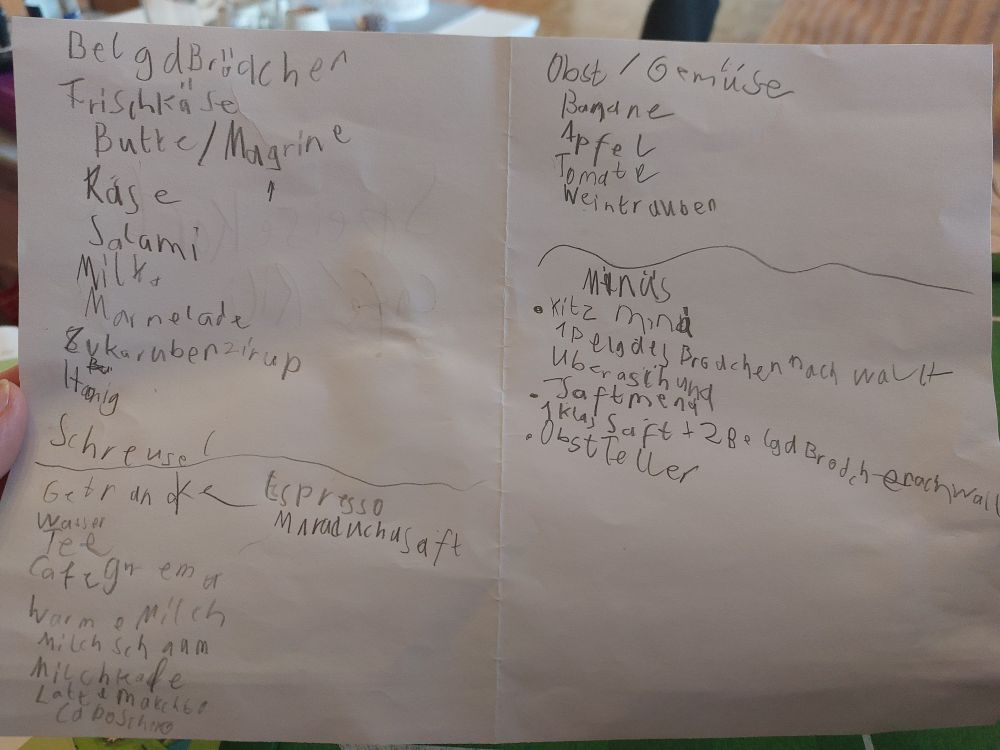 BelgdBrödchen
Frischkäse
Butte/Magrine
Käse
Salami
Milka
Marmelade
Zukarubenzirup
Honig
Schreusel
Getränke
Espresso
Maraduchasaft
Wasser
Tee
Warme Milch
Milchschaum
Milchkafe
Latte Makchto
Caboschino
Obst / Gemüse
Banane
Apfel
Tomate
Weintrauben
Menüs
• Kitz Menü
1 Belgdes Brödchen nach wallt
Uberaschund
• Saftmenü
1 Klas Saft + 2 BelgdBrödche nach wall
• Obst Teller